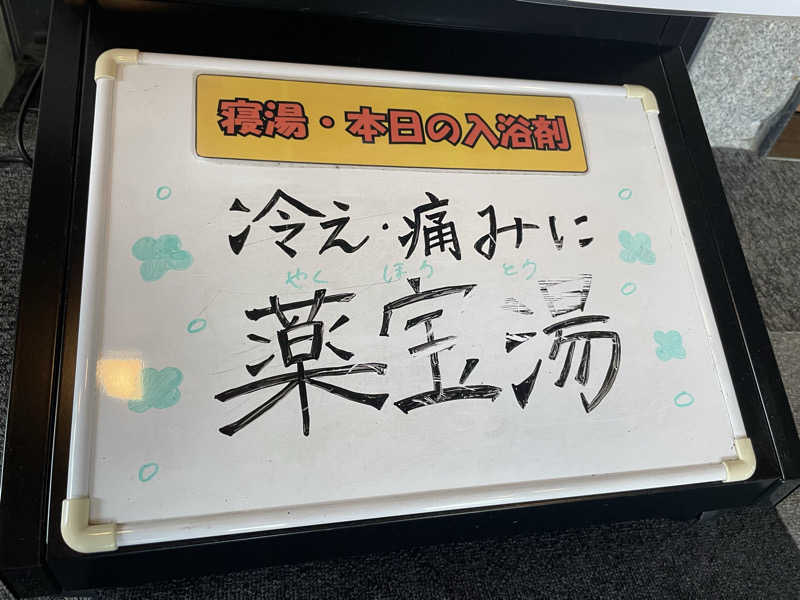 寝湯・本日の入浴剤
冷え・痛みに
やく ほう とう
薬宝湯